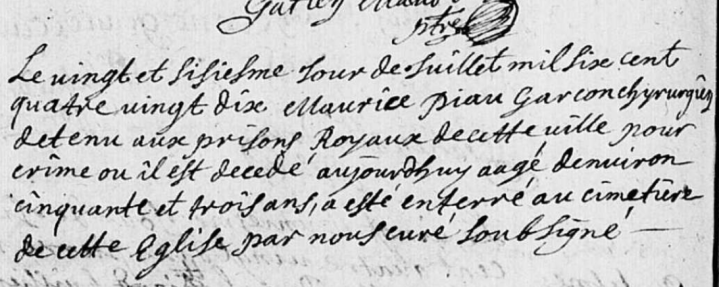 ptre
Le vingt et sisiesme Jour de Juillet mil six cent
quatre vingt dix Maurice piau Garcon chyrurgien
detenu aux prisons Royaux de cette ville pour
crime ou il est decedé aujourdhuy aagé denuiron
cinquante et trois ans, a esté enterré au cimetiere
de cette Eglise par nous curé soubsigné